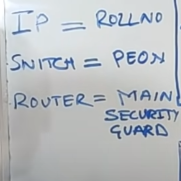 IP = ROLLNO
SNITCH = PEON
ROUTER = MAIN
SECURITY
GUARD